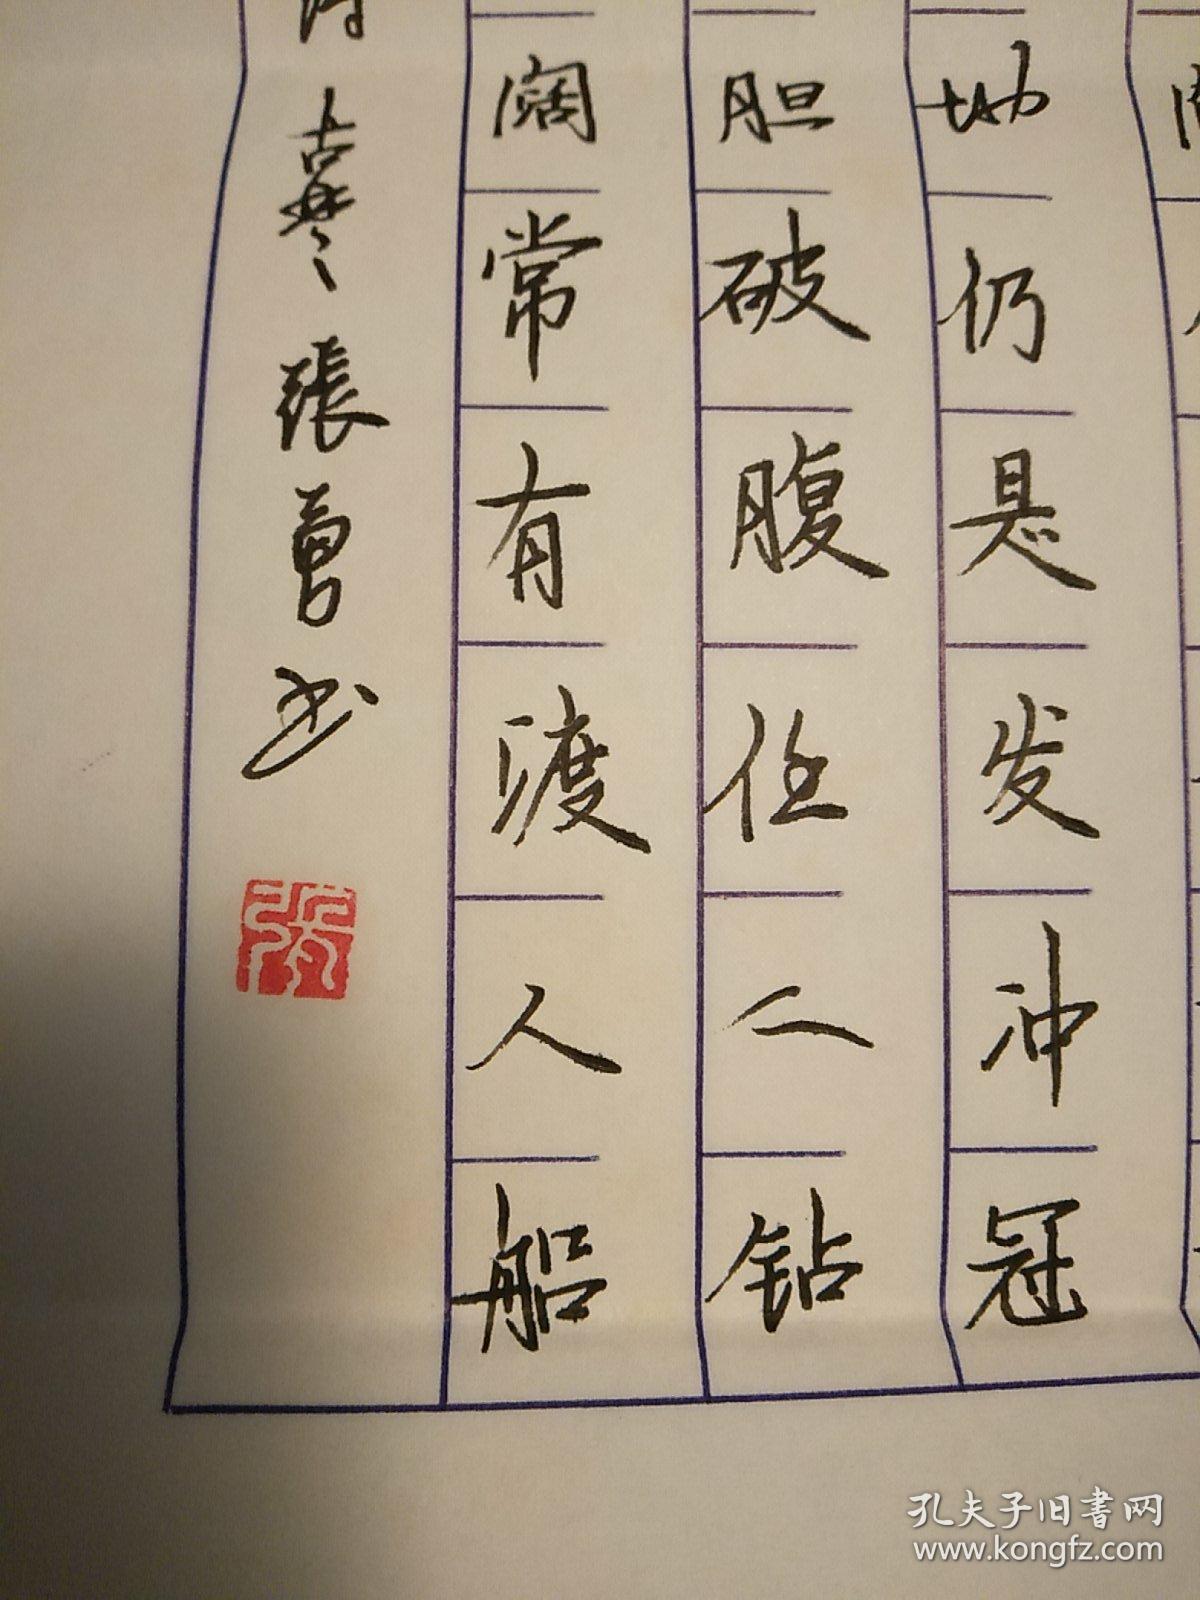 地仍是发冲冠
胆破腹任人钻
阔常有渡人船
张勇书
孔夫子旧書网
www.kongfz.com